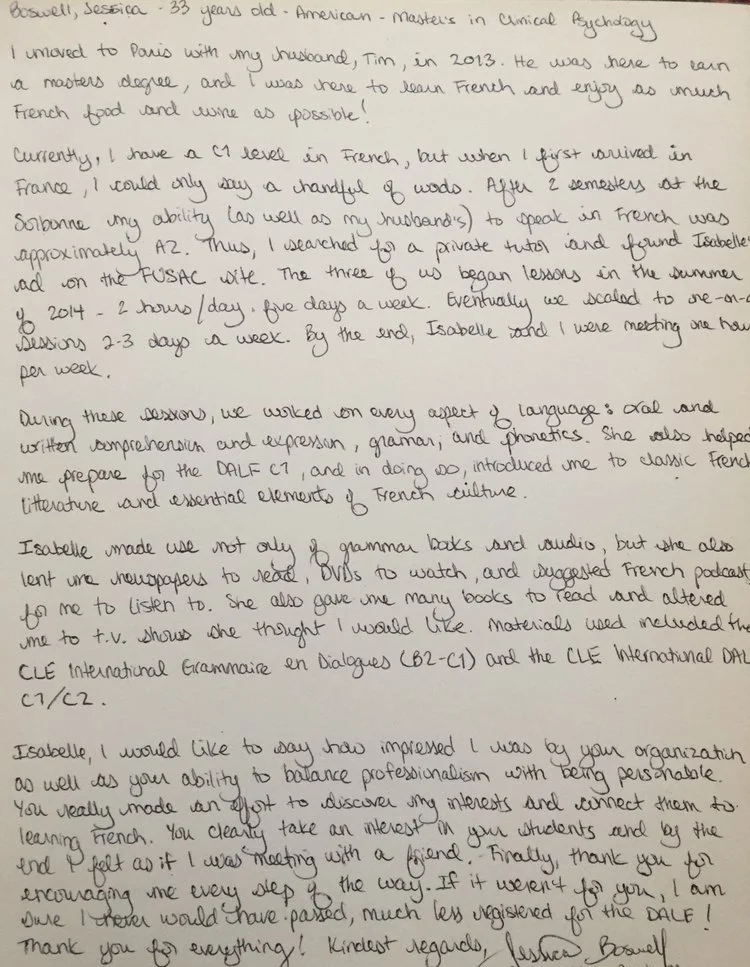 Boswell, Jessica - 33 years old - American - Master's in Clinical Psychology
I moved to Paris with my husband, Tim, in 2013. He was here to earn
a masters degree, and I was here to learn French and enjoy as much
French food and wine as possible!
Currently, I have a C1 level in French, but when I first arrived in
France, I could only say a handful of words. After 2 semesters at the
Sorbonne my ability (as well as my husband's) to speak in French was
approximately A2. Thus, I searched for a private tutor and found Isabelle's
ad on the FUSAC site. The three of us began lessons in the summer
of 2014 - 2 hours/day, five days a week. Eventually we scaled to one-on-o
sessions 2-3 days a week. By the end, Isabelle and I were meeting one hou
per week.
During these sessions, we worked on every aspect of language: oral and
written comprehension and expression, gramar, and phonetics. She also helped
me prepare for the DALF C1, and in doing so, introduced me to classic French
litterature and essential elements of French culture.
Isabelle made use not only of grammar books and audio, but she also
lent me newspapers to read, DVDs to watch, and suggested French podcast
for me to listen to. She also gave me many books to read and altered
me to t.v. shows she thought I would like. Materials used included the
CLE International Grammaire en Dialogues (B2-C1) and the CLE International DAL
C1/C2.
Isabelle, I would like to say how impressed I was by your organization
as well as your ability to balance professionalism with being personable.
You really made an effort to discover my interests and connect them to
learning French. You clearly take an interest in your students and by the
end I felt as if I was meeting with a friend. Finally, thank you for
encouraging me every step of the way. If it weren't for you, I am
sure I never would have passed, much less registered for the DALF!
Thank you for everything! Kindest regards, Jessica Boswell